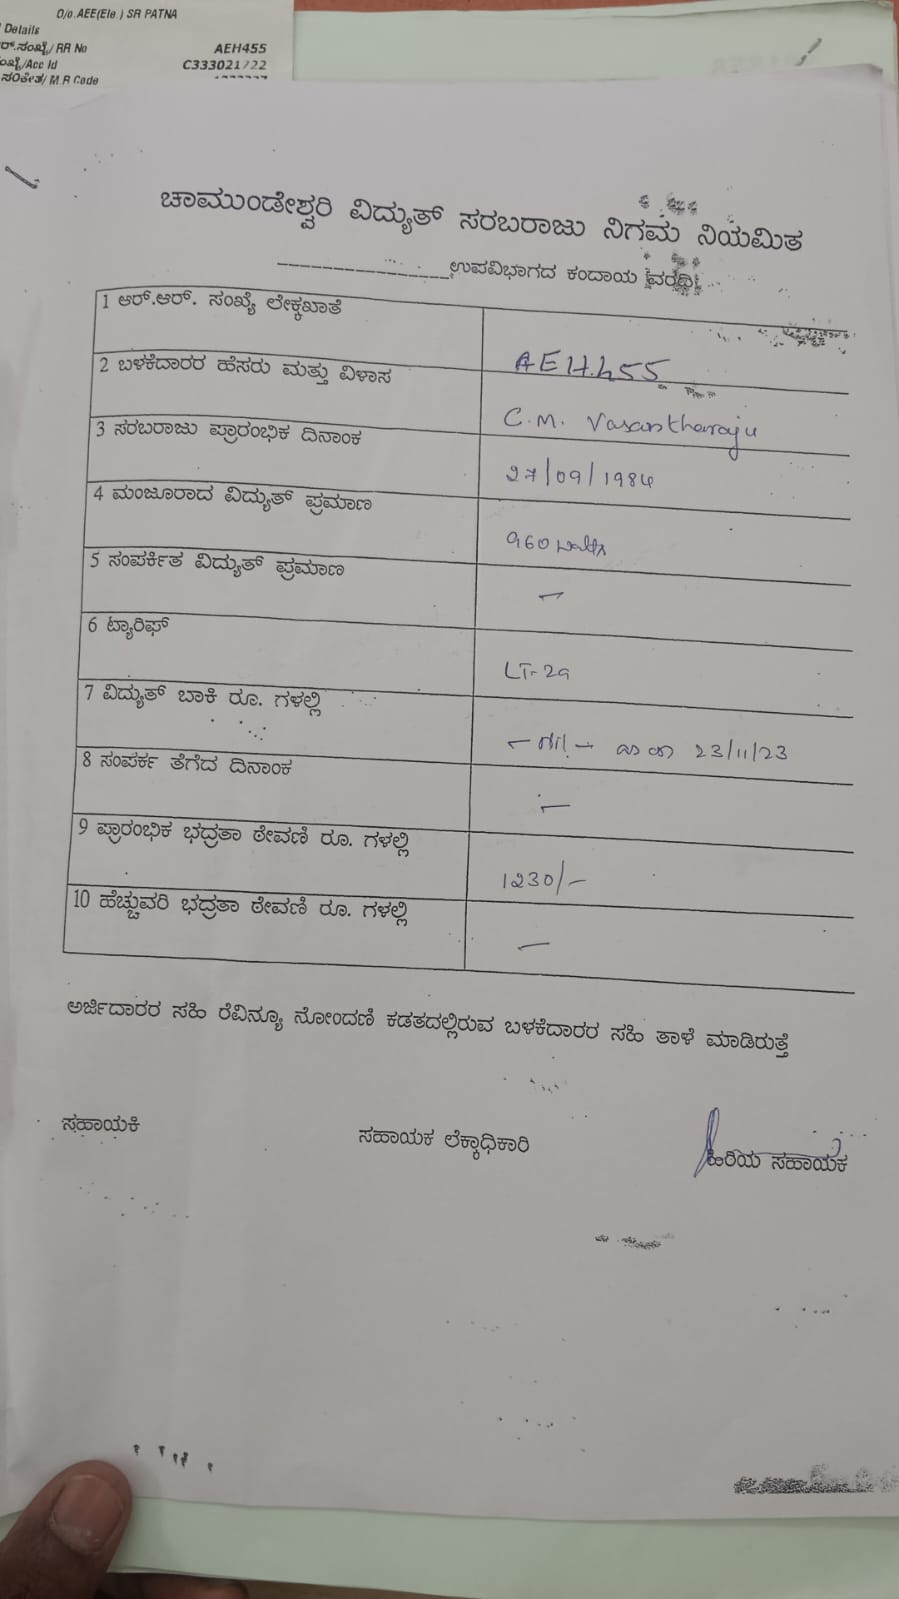 O/o.AEE(Ele.) SR PATNA
Details
ರ್.ಸಂಖ್ಯೆ/ RR No AEH455
ಂಖ್ಯೆ/Acc Id C333021722
ಸಂಕೇತ/ M.R.Code
ಚಾಮುಂಡೇಶ್ವರಿ ವಿದ್ಯುತ್ ಸರಬರಾಜು ನಿಗಮ ನಿಯಮಿತ
_________________ಉಪವಿಭಾಗದ ಕಂದಾಯ ವರದಿ
1 ಆರ್.ಆರ್. ಸಂಖ್ಯೆ ಲೇಕ್ಕಖಾತೆ AEH.455
2 ಬಳಕೆದಾರರ ಹೆಸರು ಮತ್ತು ವಿಳಾಸ C.M. Vasantharaju
3 ಸರಬರಾಜು ಪ್ರಾರಂಭಿಕ ದಿನಾಂಕ 27/09/1984
4 ಮಂಜೂರಾದ ವಿದ್ಯುತ್ ಪ್ರಮಾಣ 960 watts
5 ಸಂಪರ್ಕಿತ ವಿದ್ಯುತ್ ಪ್ರಮಾಣ —
6 ಟ್ಯಾರಿಫ್ LT-2a
7 ವಿದ್ಯುತ್ ಬಾಕಿ ರೂ. ಗಳಲ್ಲಿ – Nil – 23/11/23
8 ಸಂಪರ್ಕ ತೆಗೆದ ದಿನಾಂಕ —
9 ಪ್ರಾರಂಭಿಕ ಭದ್ರತಾ ಠೇವಣಿ ರೂ. ಗಳಲ್ಲಿ 1230/-
10 ಹೆಚ್ಚುವರಿ ಭದ್ರತಾ ಠೇವಣಿ ರೂ. ಗಳಲ್ಲಿ —
ಅರ್ಜಿದಾರರ ಸಹಿ ರೆವಿನ್ಯೂ ನೋಂದಣಿ ಕಡತದಲ್ಲಿರುವ ಬಳಕೆದಾರರ ಸಹಿ ತಾಳೆ ಮಾಡಿರುತ್ತೆ
ಸಹಾಯಕಿ ಸಹಾಯಕ ಲೆಕ್ಕಾಧಿಕಾರಿ ಹಿರಿಯ ಸಹಾಯಕ